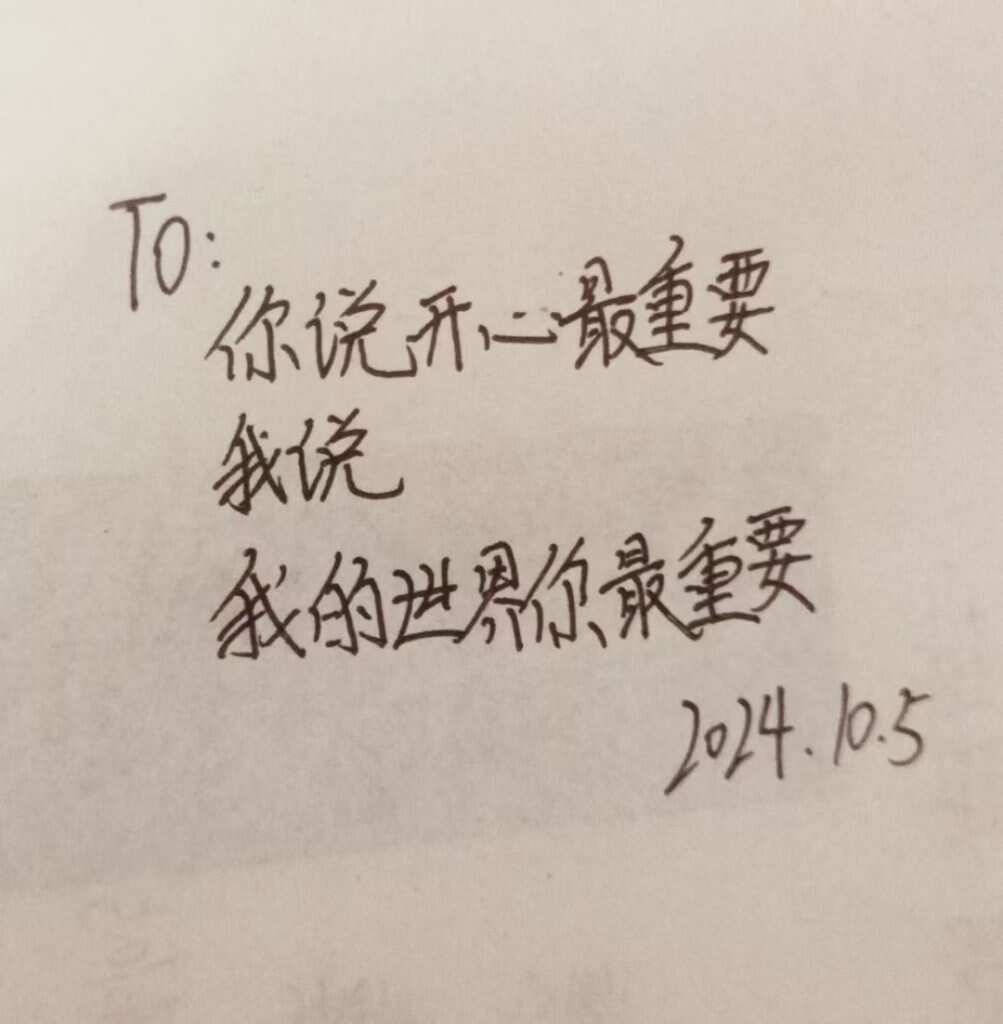 TO:
你说开心最重要
我说
我的世界你最重要
2024.10.5